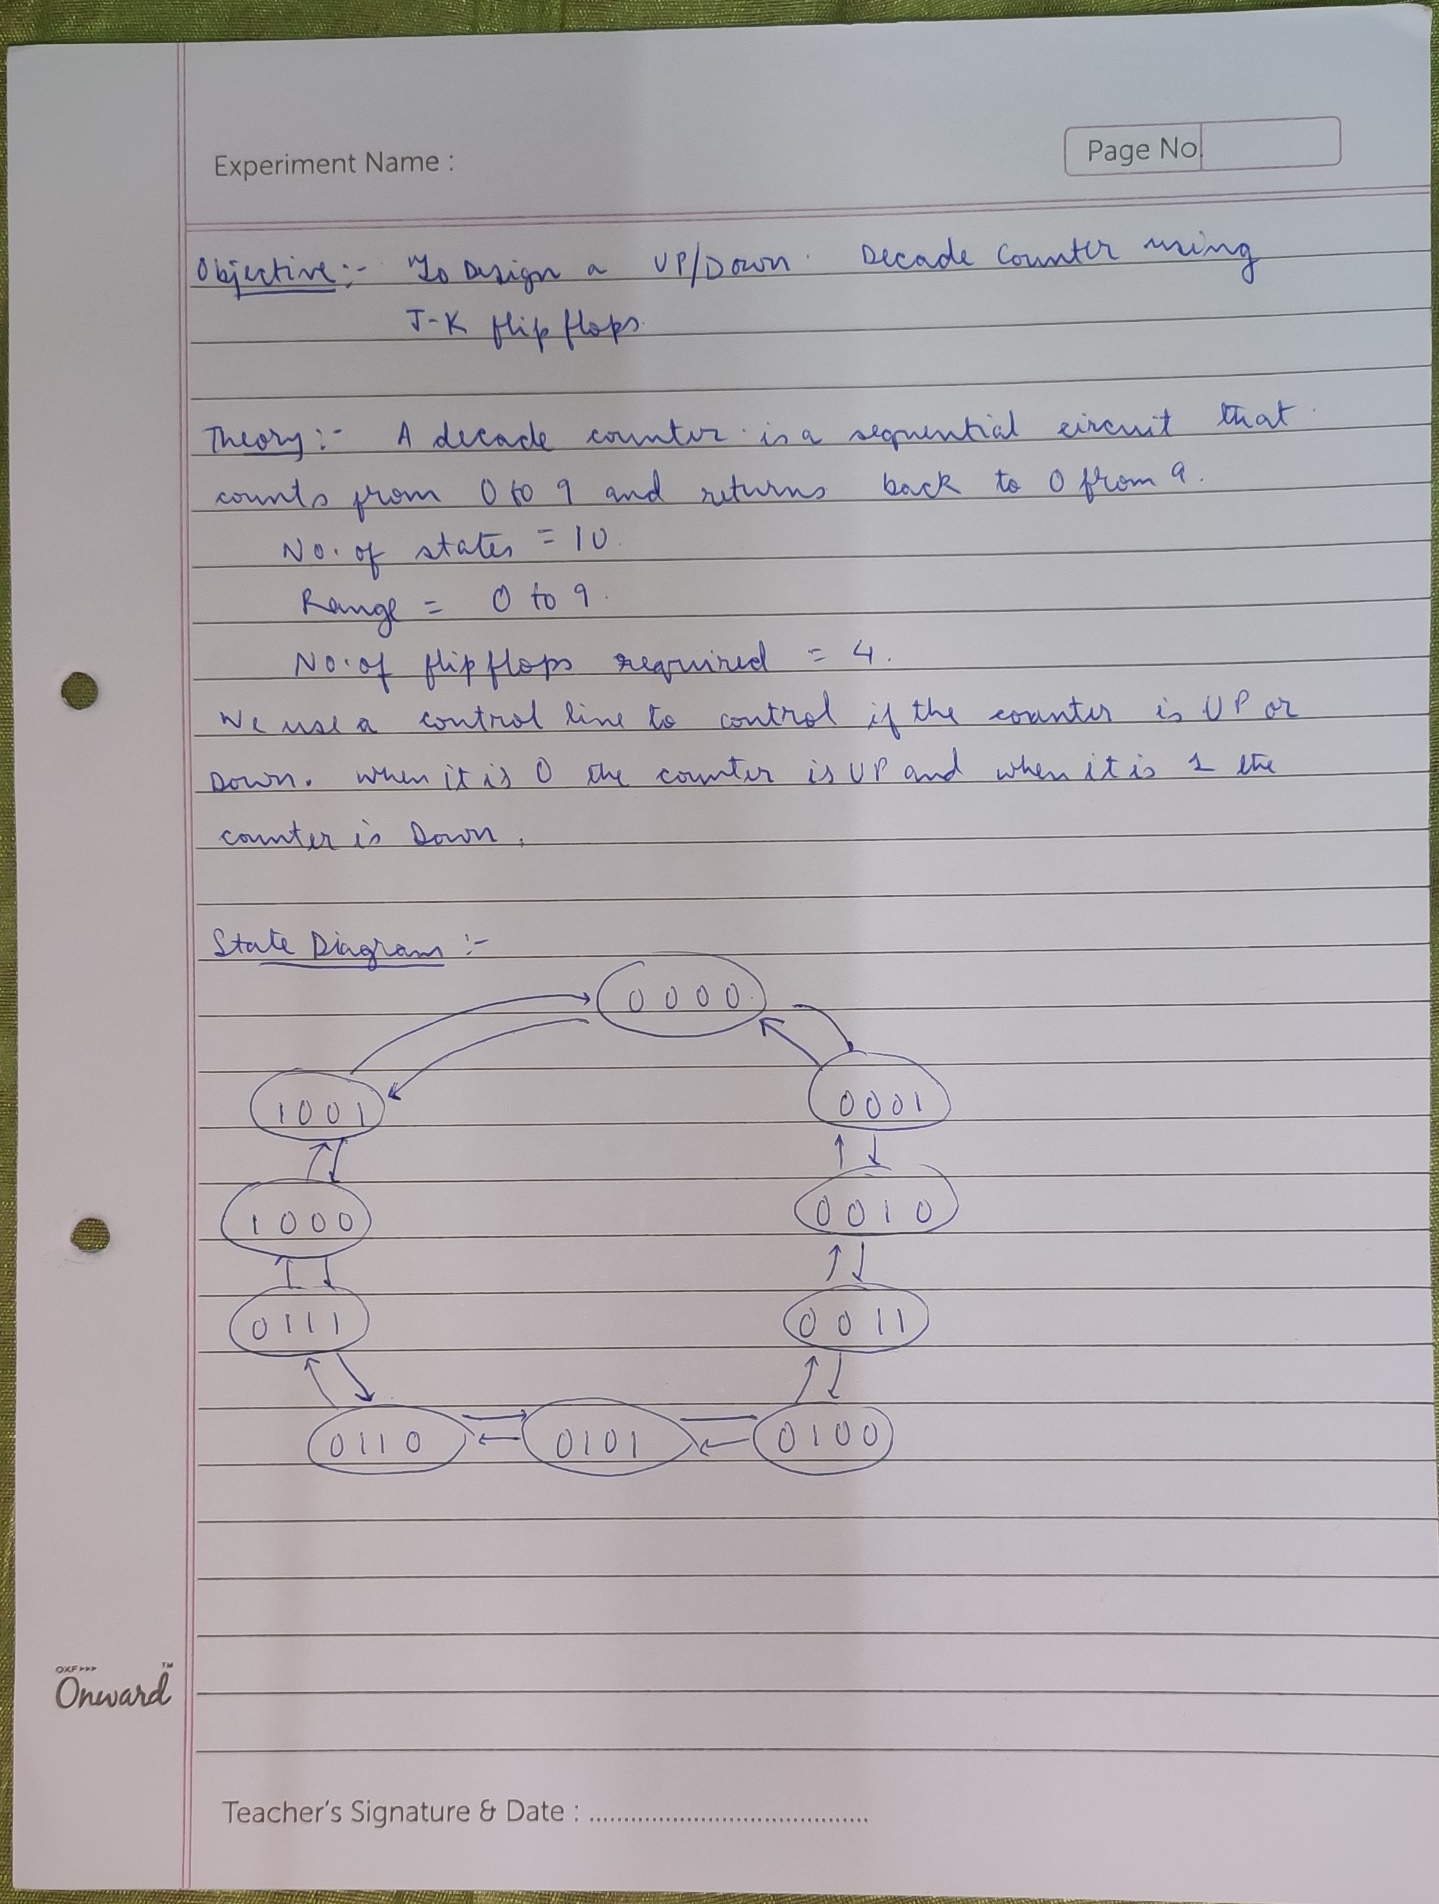 Experiment Name :
Page No
Objective :- To Design a UP/Down Decade Counter using
J-K flip flops.
Theory :- A decade counter is a sequential circuit that
counts from 0 to 9 and returns back to 0 from 9.
No. of states = 10
Range = 0 to 9.
No. of flip flops required = 4.
We use a control line to control if the counter is UP or
Down. when it is 0 the counter is UP and when it is 1 the
counter is Down.
State Diagram :-
0000
1001
0001
1000
0010
0111
0011
0110
0101
0100
OXF>>>
Onward TM
Teacher's Signature & Date : ........................................